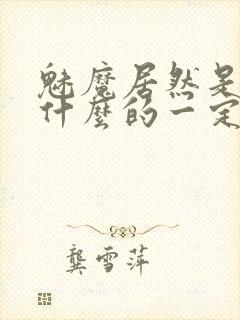 魅魔居然是
什麼的一定
龔雪萍